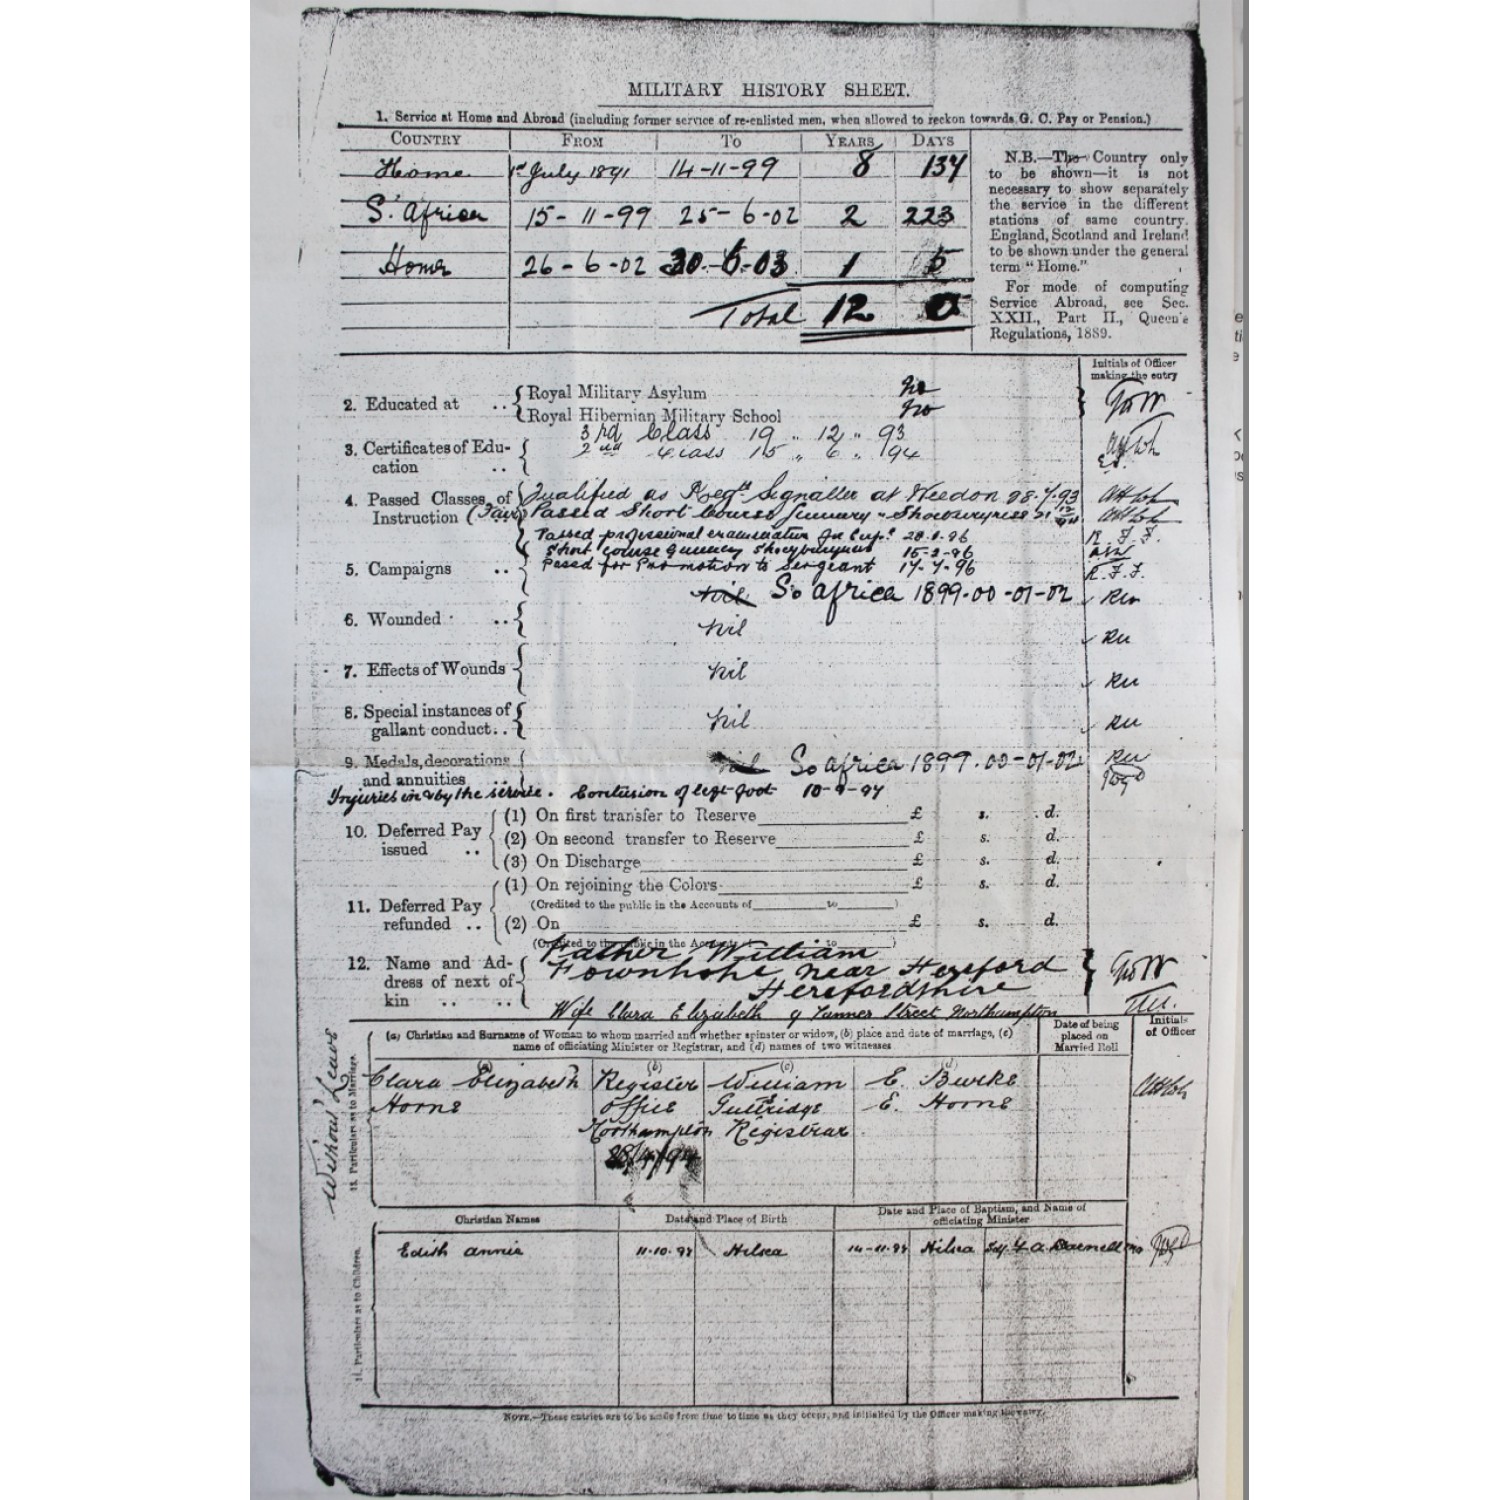 MILITARY HISTORY SHEET.
1. Service at Home and Abroad (including former service of re-enlisted men, when allowed to reckon towards G. C. Pay or Pension.)
COUNTRY FROM TO YEARS DAYS
Home 1st July 1891 14-11-99 8 137
S. Africa 15-11-99 25-6-02 2 223
Home 26-6-02 30-6-03 1 5
Total 12 0
N.B.—The Country only
to be shown—it is not
necessary to show separately
the service in the different
stations of same country.
England, Scotland and Ireland
to be shown under the general
term "Home."
For mode of computing
Service Abroad, see Sec.
XXII., Part II., Queen's
Regulations, 1889.
Initials of Officer
making the entry
2. Educated at .. Royal Military Asylum No
Royal Hibernian Military School No
3. Certificates of Edu-
cation .. 3rd Class 19 " 12 " 93
2nd Class 15 " 6 " 94
4. Passed Classes of
Instruction (Fair) Qualified as Regtl Signaller at Weedon 28.4.93
Passed Short Course Gunnery Shoeburyness
Passed professional examination for Corpl 28.1.96
Short course Gunnery Shoeburyness 15-2-96
Passed for Promotion to Sergeant 17-4-96
R. F. F.
R. F. F.
5. Campaigns .. Nil So Africa 1899-00-01-02
6. Wounded .. Nil
7. Effects of Wounds Nil
8. Special instances of
gallant conduct.. Nil
9. Medals, decorations
and annuities .. Nil So Africa 1899-00-01-02
Injuries in & by the service. Contusion of left foot 10-9-97
10. Deferred Pay
issued .. (1) On first transfer to Reserve £ s. d.
(2) On second transfer to Reserve £ s. d.
(3) On Discharge £ s. d.
11. Deferred Pay
refunded .. (1) On rejoining the Colors £ s. d.
(Credited to the public in the Accounts of to )
(2) On £ s. d.
(Credited to the public in the Accounts of to )
12. Name and Ad-
dress of next of
kin .. .. Father William
Fownhope near Hereford
Herefordshire
Wife Clara Elizabeth 9 Tanner Street Northampton
Without Leave
13. Particulars as to Marriage.
(a) Christian and Surname of Woman to whom married and whether spinster or widow, (b) place and date of marriage, (c)
name of officiating Minister or Registrar, and (d) names of two witnesses
Date of being
placed on
Married Roll
Initials
of Officer
(a) (b) (c) (d)
Clara Elizabeth Register William E. Burke
Horne Office Guttridge E. Horne
Northampton Registrar
28/4/94
14. Particulars as to Children.
Christian Names Date and Place of Birth Date and Place of Baptism, and Name of
officiating Minister
Edith Annie 11.10.98 Hilsea 14-11-98 Hilsea
NOTE.—These entries are to be made from time to time as they occur, and initialled by the Officer making the entry.